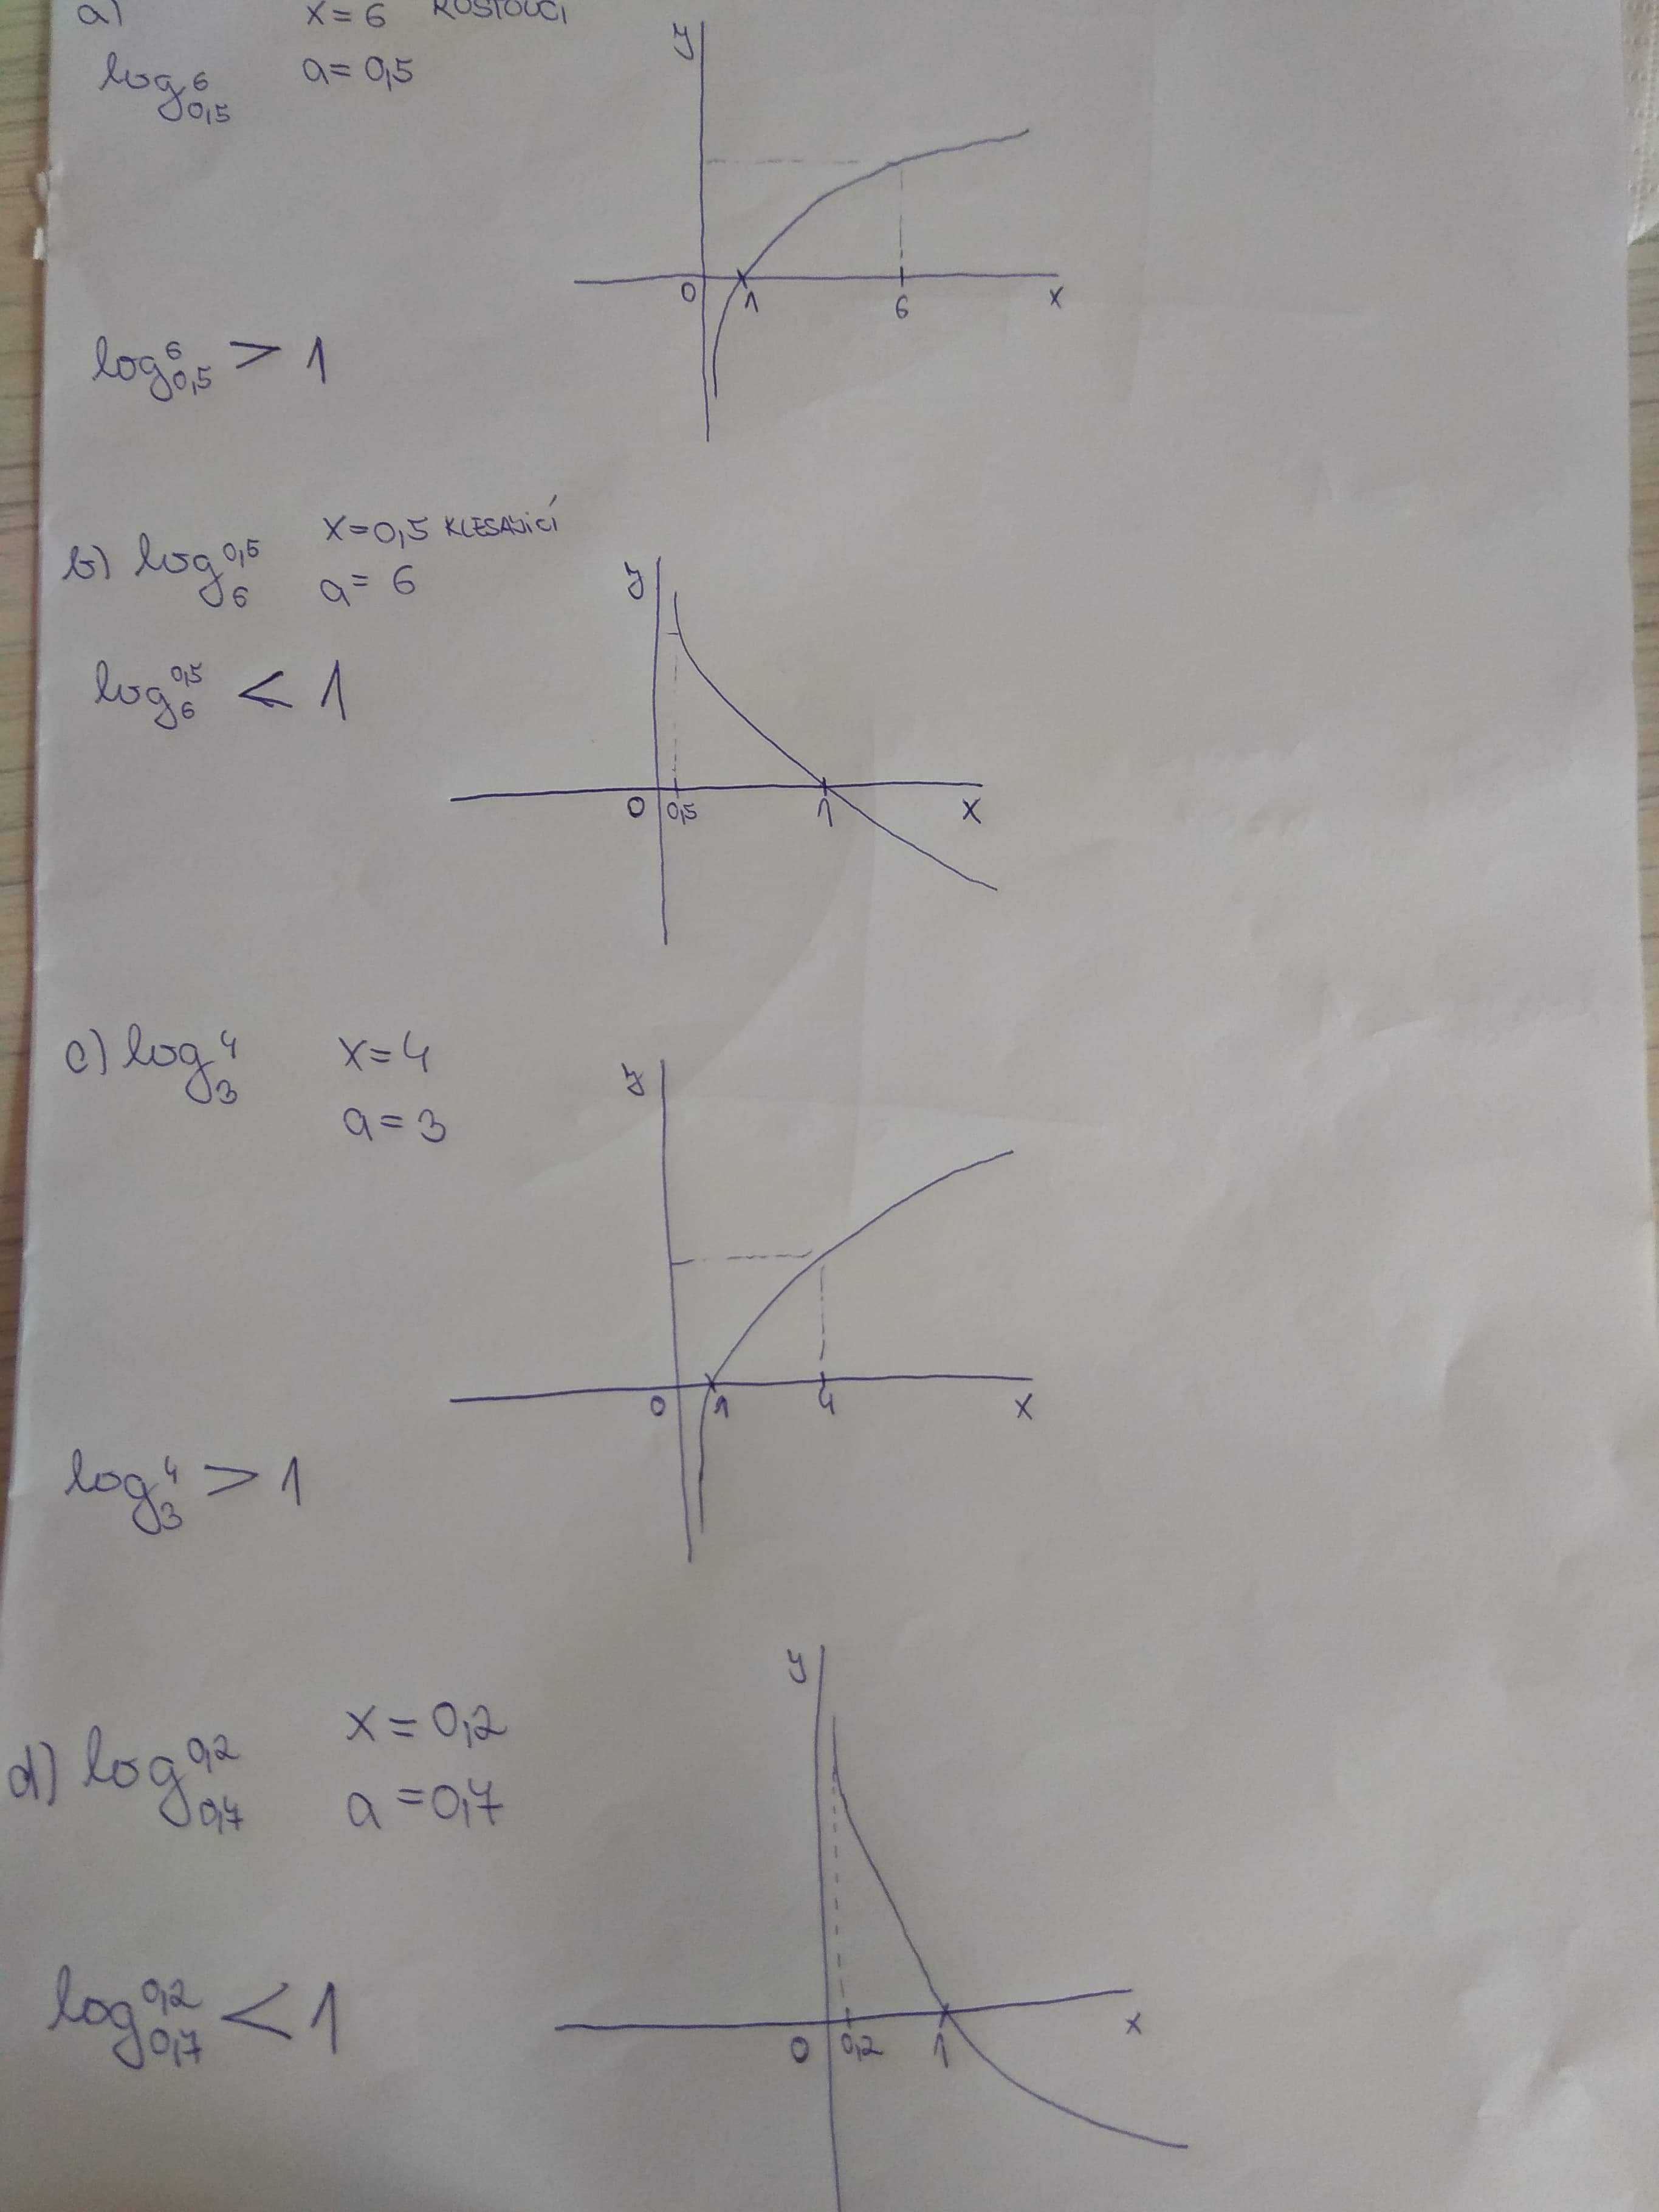 a) x=6 ROSTOUCÍ
log 6 0,5 a=0,5
y
0 1 6 x
log 6 0,5 > 1
b) log 0,5 6 x=0,5 KLESAJICÍ
a=6
y
log 0,5 6 < 1
0 0,5 1 x
c) log 4 3 x=4
a=3
y
0 1 4 x
log 4 3 > 1
y
d) log 0,2 0,7 x=0,2
a=0,7
log 0,2 0,7 < 1
0 0,2 1 x